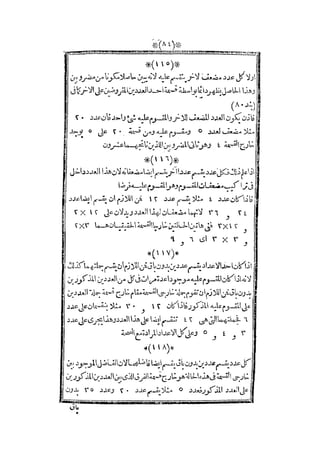 *(٨٤)*
*(١١٥)*
اولا كل عدد مضعف لآخر ينقسم عليه لانه يبين حاصلا مكونا من مضروبين
وهذا الحاصل يظهر دائما بواسطة قسمة احد العددين المفروضين على الاخر كما فى
(بند ٨٠)
فاذن يكون العدد المضعف للاخر والمقسوم عليه شئ واحد فان عدد ٢٠
مثلا مضعف لعدد ٥ ومقسوم عليه ومن قسمة ٢٠ على ٥ يوجد
خارج القسمة ٤ وهو ثانى المضروبين اللذين ناتجهما عشرون
*(١١٦)*
اذا علم ذلك فكل عدد يقسم عددا آخر يقسم ايضا مضعفاته لان هذا العدد داخل
فى تراكيب مضعفات المقسوم وهو المقسوم عليه فرضا
فاذا كان عدد ٤ مثلا يقسم عدد ١٢ فن اللازم ان يقسم ايضا عدد
٢٤ و ٣٦ لانهما مضعفان لهذا العدد ويدلان على ١٢ × ٢
و ١٢ × ٣ فى هاتين الحالتين خارجا القسمة الحقيقيان هما ٣ × ٢
و ٣ × ٣ اى ٦ و ٩
*(١١٧)*
اذا كان احد الاعداد يقسم عددين بدون باق فن اللازم ان يقسم جملتهما كذلك
لانه اذا كان المقسوم عليه موجودا عدة مرات فى كل من العددين المذكورين
بدون باق فن اللازم ان تقوم جملة خارجى القسمة مقام خارج قسمة جملة العددين
على المقسوم عليه المذكور فاذا كان ١٢ و ٣٠ مثلا ينقسمان على عدد
٦ فجملتهما التى هى ٤٢ تنقسم ايضا على هذا العدد وهذا يجرى على عدد
٣ و ٤ و ٥ وعلى كل الاعداد المرادة مع الصحة
*(١١٨)*
كل عدد يقسم عددين بدون باق يقسم ايضا فاضلهما لان الفاضل الموجود بين
خارجى القسمة فى هذه الحالة هو خارج قسمة الفرق الذى بين العددين المذكورين
على العدد المذكور فعدد ٥ مثلا يقسم عدد ٢٠ وعدد ٣٥ بدون
باق